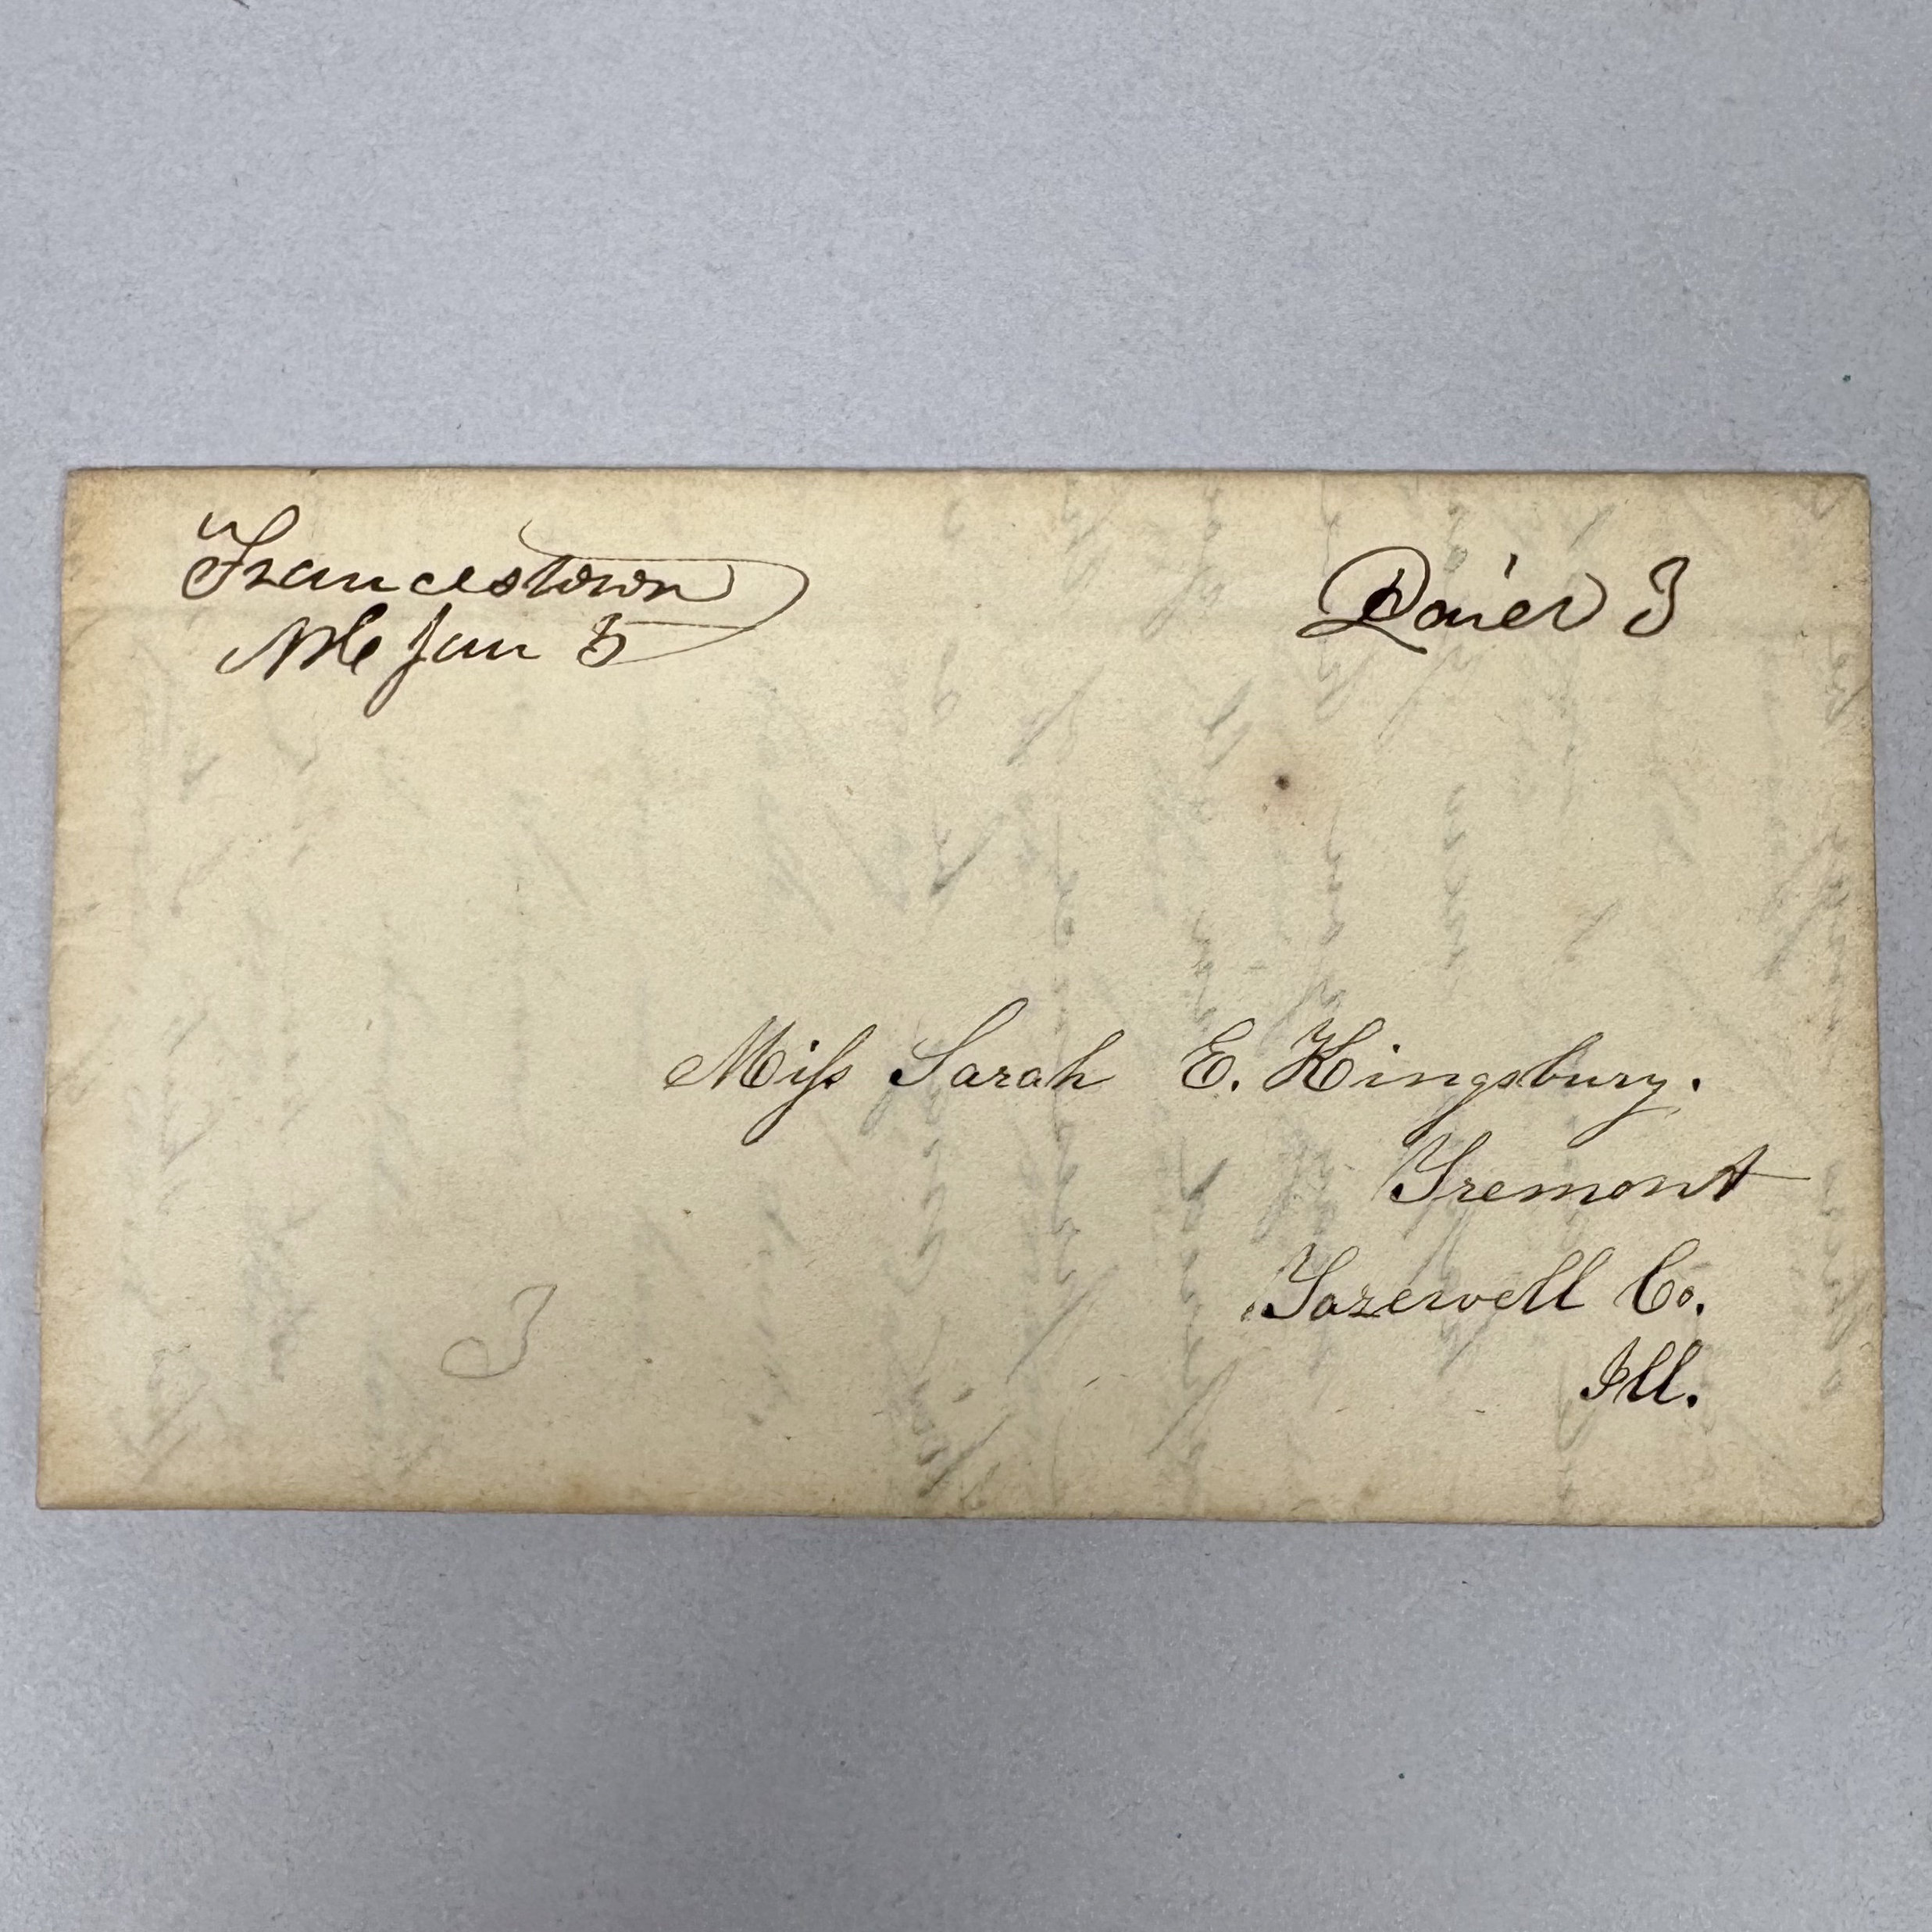 Francestown
NH Jan 5
Paid 3
Miss Sarah E. Kingsbury.
Tremont
Tazewell Co.
Ill.
3